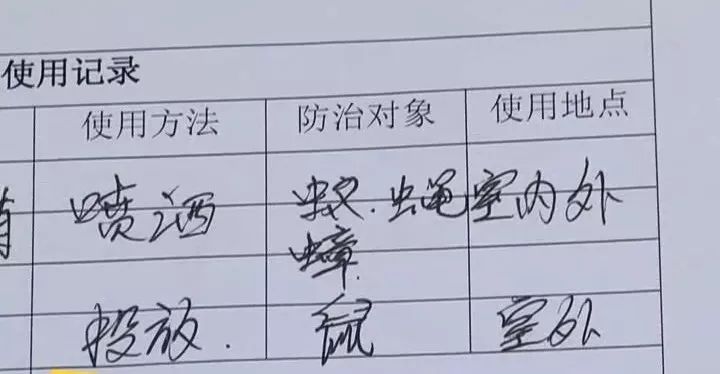 使用记录
使用方法 防治对象 使用地点
喷洒 蚊.蝇 室内外
蟑.
投放. 鼠 室外